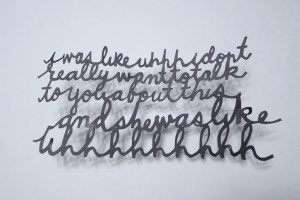 i was like uhhh i dont
really want to talk
to you about this
and she was like
uhhhhhhhhhh